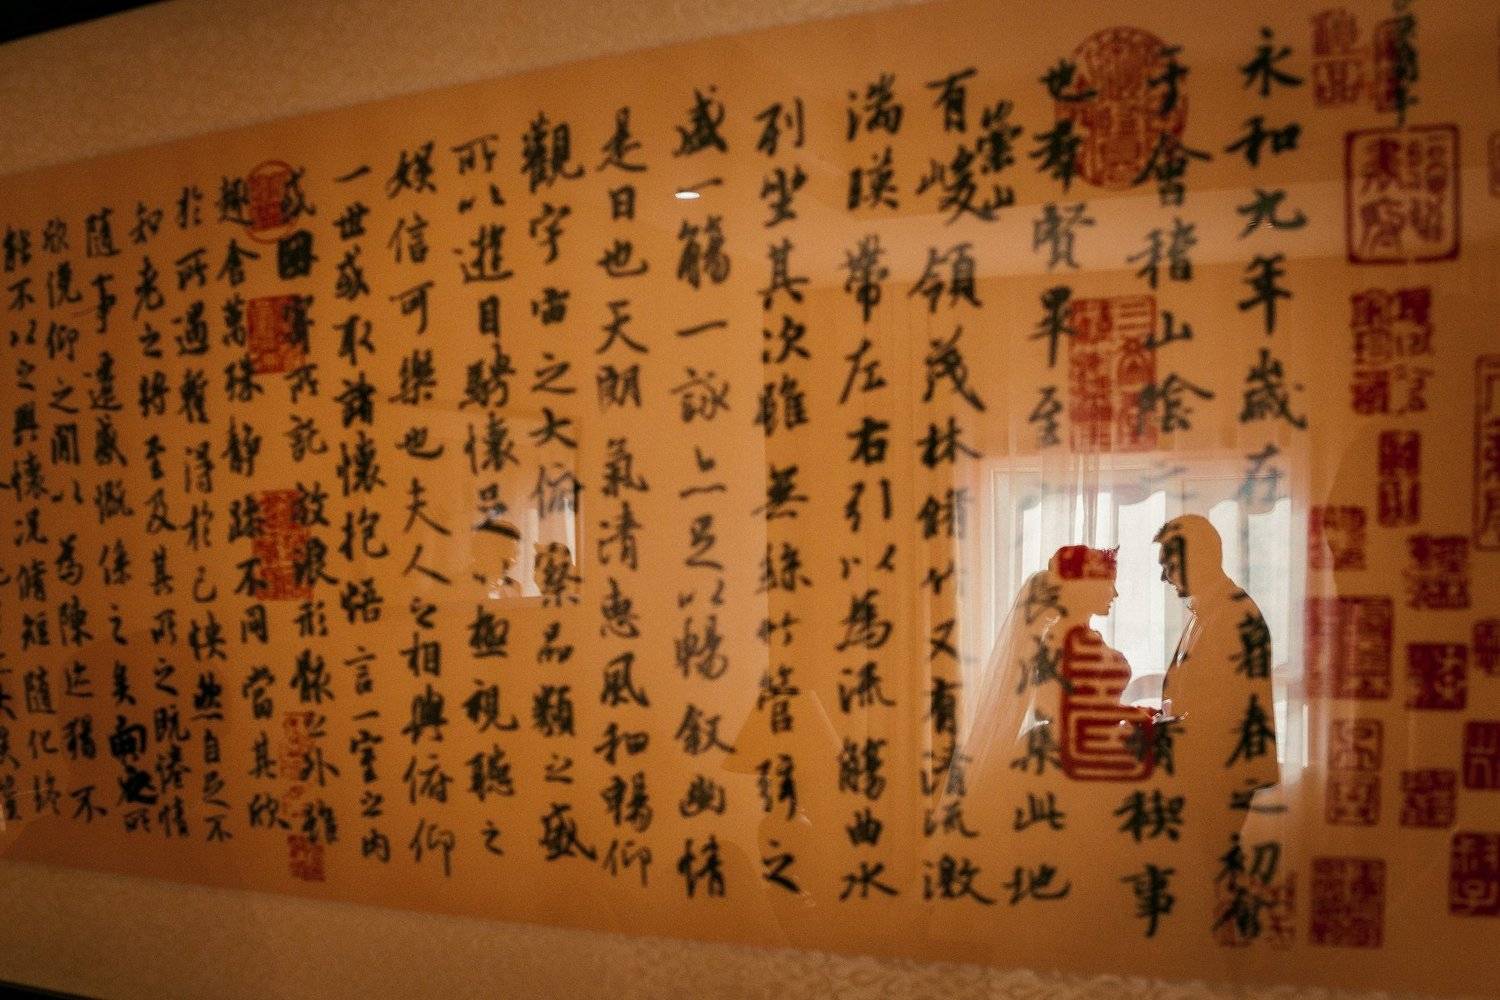 永和九年歲在暮春之初會
于會稽山陰之脩禊事
也羣賢畢至長咸集此地
有崇山峻領茂林脩竹又有清流激
湍暎帶左右引以為流觴曲水
列坐其次雖無絲竹管弦之
盛一觴一詠亦足以暢敘幽情
是日也天朗氣清惠風和暢仰
觀宇宙之大俯察品類之盛
所以遊目騁懷足以極視聽之
娛信可樂也夫人之相與俯仰
一世或取諸懷抱悟言一室之內
或因寄所託放浪形骸之外雖
趣舍萬殊靜躁不同當其欣
於所遇暫得於己怏然自足不
知老之將至及其所之既惓情
隨事遷感慨係之矣向之所
欣俛仰之閒以為陳迹猶不
能不以之興懷況脩短隨化終